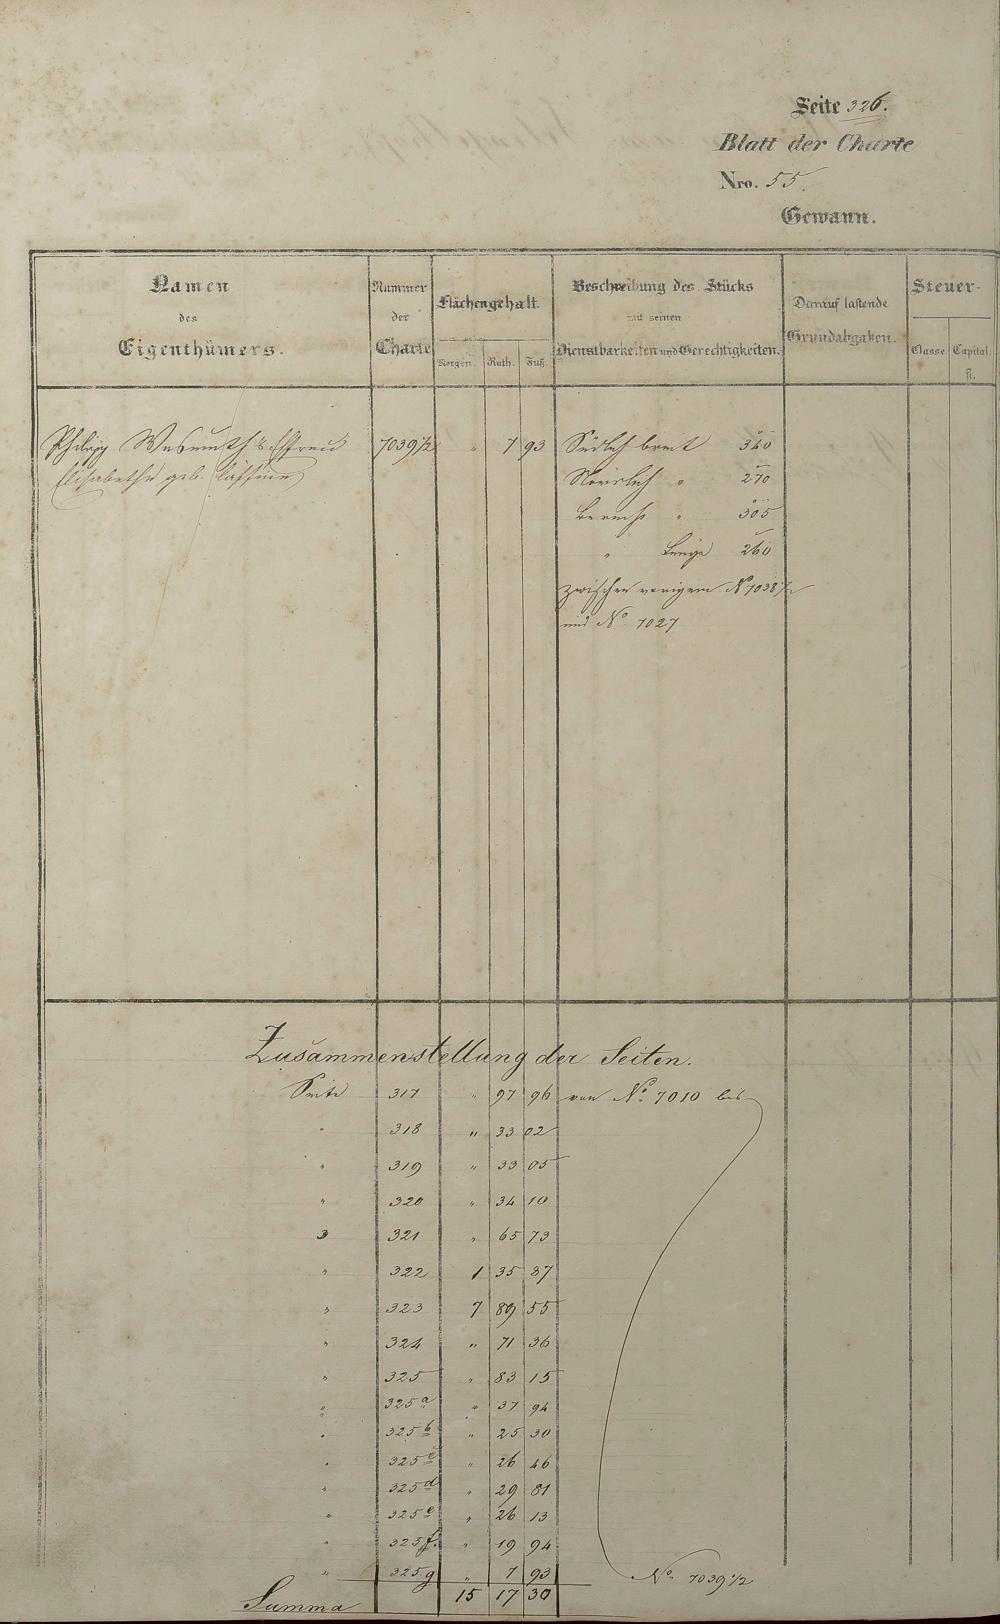 Seite 326.
Blatt der Charte
Nro. 55.
Gewann.
Namen des Eigenthümers.
Nummer der Charte
Flächengehalt.
Morgen. Ruth. Fuß.
Beschreibung des Stücks mit seinen Dienstbarkeiten und Gerechtigkeiten.
Darauf lastende Grundabgaben.
Steuer-
Classe Capital.
fl.
Philipp Wasmuth 7039 1/2 " 7 93 Südlich breit 340
Elisabetha geb. Nördlich " 270
" 305
" Länge 260
zwischen vorigem No 7038 1/2
und No. 7027
Zusammenstellung der Seiten.
Seite 317 " 97 96 von No. 7010 bis
" 318 " 33 02
" 319 " 33 05
" 320 " 34 10
" 321 " 65 73
" 322 1 35 87
" 323 7 89 55
" 324 " 71 36
" 325 " 83 15
" 325a " 37 94
" 325b " 25 30
" 325c " 26 46
" 325d " 29 81
" 325e " 26 13
" 325f. " 19 94
" 325g " 7 93 No. 7039 1/2
Summa 15 17 30